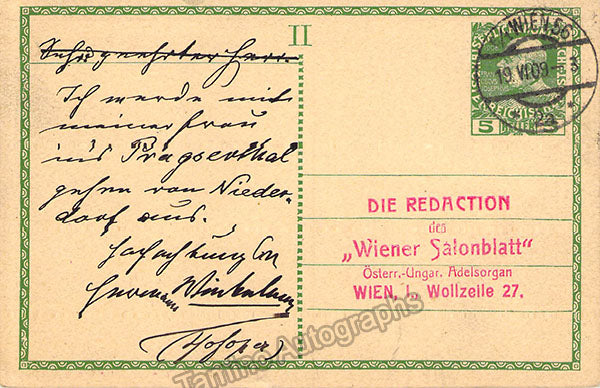 II
Sehr geehrter Herr.
Ich werde mit
meiner Frau
ins Pragserthal
gehen von Nieder-
dorf aus.
Hochachtungsvoll
Hermann Winkelmann
(Hofoper)
WIEN 56
19 VI 09
5
DIE REDACTION
des
„Wiener Salonblatt"
Österr.-Ungar. Adelsorgan
WIEN, I., Wollzeile 27.
Tamino Autographs